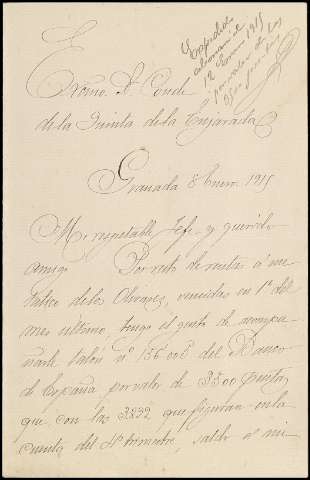 Expedido
abonaré el
12 Enero 1915
por valor de los
Exmo. Sr. Conde
de la Quinta de la Enjarada
Granada 8 Enero 1915
Mi respetable Jefe y querido
amigo. Por resto de rentas a me-
tálico de los Olivares, vencidas en 1º del
mes último, tengo el gusto de acompa-
ñarle talón nº 156.008 del Banco
de España por valor de 3500 pesetas,
que con las 3292 que figuran en la
cuenta del 4º trimestre, saldo a mi